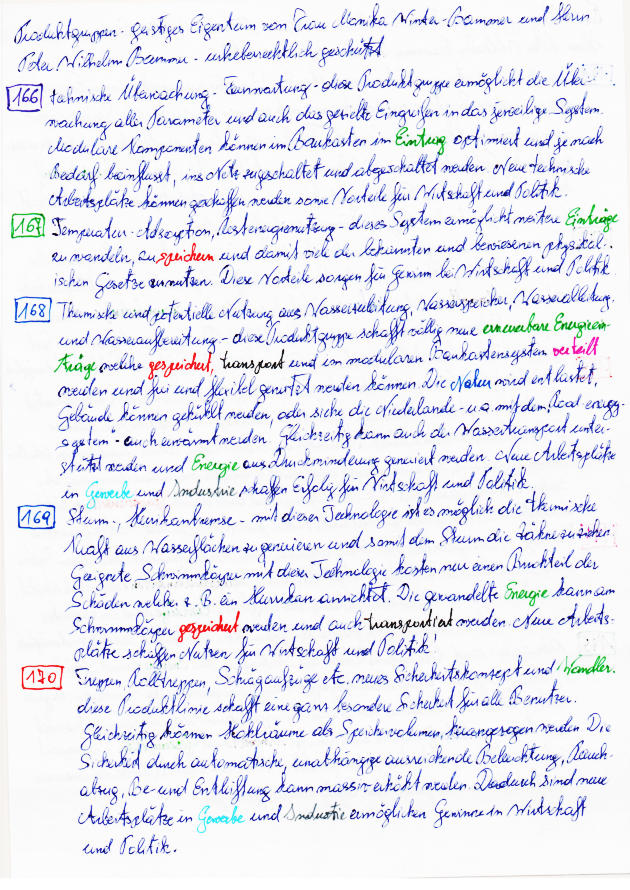 Produktgruppen - geistiges Eigentum von Frau Monika Winter-Bammer und Herrn
Peter Wilhelm Bammer - urheberrechtlich geschützt.
166 technische Überwachung - Fernwartung - diese Produktgruppe ermöglicht die Über-
wachung aller Parameter und auch das gezielte Eingreifen in das jeweilige System.
Modulare Komponenten können im Baukasten im Eintrag optimiert und je nach
Bedarf beinflusst, ins Netz zugeschaltet und abgeschaltet werden. Neue technische
Arbeitsplätze können geschaffen werden sowie Vorteile für Wirtschaft und Politik.
167 Temperatur-Adsorption, dieses System ermöglicht weitere Einträge
zu wandeln, zu speichern und damit viele der bekannten und bewiesenen physikal-
ischen Gesetze zu nutzen. Diese Vorteile sorgen für Gewinn bei Wirtschaft und Politik
168 Thermische und potentielle Nutzung aus Wasserzuleitung, Wasserspeicher, Wasserableitung.
und Wasseraufbereitung - diese Produktgruppe schafft völlig neue erneuerbare Energieein-
träge welche gespeichert, transport und im modularen Baukastensystem verteilt
werden und frei und flexibel genutzt werden können. Die Natur wird entlastet,
Gebäude können gekühlt werden, oder siehe die Niederlande - u.a. mit dem "Road energy-
system" - auch erwärmt werden. Gleichzeitig kann auch der Wassertransport unter-
stützt werden und Energie aus Druckminderung generiert werden. Neue Arbeitsplätze
in Gewerbe und Industrie schaffen Erfolg für Wirtschaft und Politik.
169 Sturm-, Hurrikanbremse - mit dieser Technologie ist es möglich die thermische
Kraft aus Wasserflächen zu generieren und somit dem Sturm die Zähne zu ziehen
Geeignete Schwimmkörper mit dieser Technologie kosten nur einen Bruchteil der
Schäden welcher z.B. ein Hurrikan anrichtet. Die gewandelte Energie kann am
Schwimmkörper gespeichert werden und auch transportiert werden Neue Arbeits-
plätze schaffen Nutzen für Wirtschaft und Politik!
170 Treppen, Rolltreppen, Schrägaufzüge etc. neues Sicherheitskonzept und Wandler.
diese Produktlinie schafft eine ganz besondere Sicherheit für alle Benutzer.
Gleichzeitig können Hohlräume als Speichervolumen, herangezogen werden Die
Sicherheit durch automatische, unabhängige ausreichende Beleuchtung, Rauch-
abzug, Be- und Entlüftung kann massiv erhöht werden. Dadurch sind neue
Arbeitsplätze in Gewerbe und Industie ermöglichen Gewinne in Wirtschaft
und Politik.